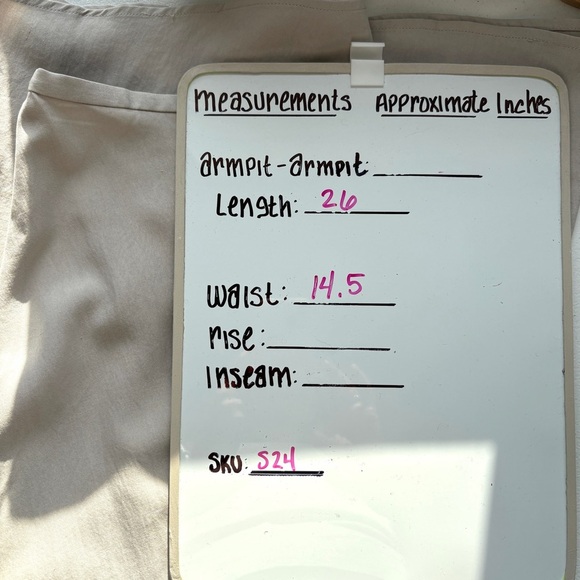 measurements Approximate Inches
armpit-armpit:
Length: 26
waist: 14.5
rise:
Inseam:
SKU: S24